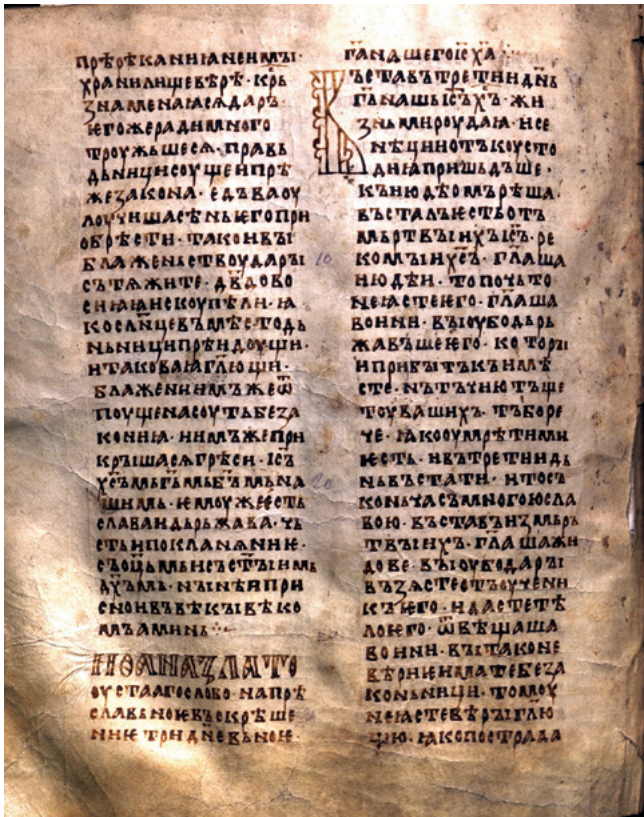 прѣрѣканиꙗ неимы·
хранилище вѣрѣ· крь
знамена ꙗсѧ даръ·
ѥгоже ради много
троужьшесѧ· правь
дьници соущеи прѣ
же закона· ѥдъва оу
лоучиша сѣнь ѥго при
обрѣсти· тако и вы
блаженьство ѹдары
сътѧжите· дв҃дово
сиꙗниѥ искоупѣли· ꙗ
ко слн҃це въ мѣсто дь
ньници прѣидоущи·
и таковаꙗ гл҃ющи·
блажени имъже ѿ
поущена соуть беза
кониꙗ· и имъже при
крышасѧ грѣси· іс҃ъ
хс҃ъмь гм҃ь бм҃ь на
шимь· ѥмоуже ѥсть
слава и дьржава· чь
сть и поклонѧниѥ·
съ оц҃ьмь и съ ст҃ыимь
дх҃ъмь· нынѣ и при
сно и въ вѣкы вѣко
мъ аминь ⁘
Иоана злато
оустааго слово на прѣ
славьноѥ въскрѣше
ниѥ тридн҃евьноѥ·
га҃ нашего іс҃ ха҃ ⁘
Въставъ третии дн҃ь
гь҃ нашь іс҃ъ хс҃ъ· жи
знь мироу даꙗ· и се
нѣции отъ коусто
диꙗ пришьдъше·
къ июдѣомъ рѣша·
въсталъ ѥсть отъ
мьртвыихъ іс҃ъ· ре
комыи хс҃ъ· гл҃аша
июдѣи· то почьто
не ꙗсте ѥго· гл҃аша
воини· вы оубо дьрь
жавъше ѥго· которы
и прибытъкъ имѣ
сте· нъ тъчию тъще
тоу вашихъ· тъ бо ре
че· ꙗко оумрѣти ми
ѥсть· и въ третии дь
нь въстати· и то съ
коньча съ многою сла
вою· въставъ из мьр
твыихъ· гл҃аша жи
дове· вы оубо дары
възѧсте отъ оучени
къ ѥго· и дасте тѣ
ло ѥго· ѿвѣщаша
воини· вы таконе
вѣрниѥ имате беза
коньници· томоу
не ꙗсте вѣры гл҃ю
щю· ꙗко пострада
10
20